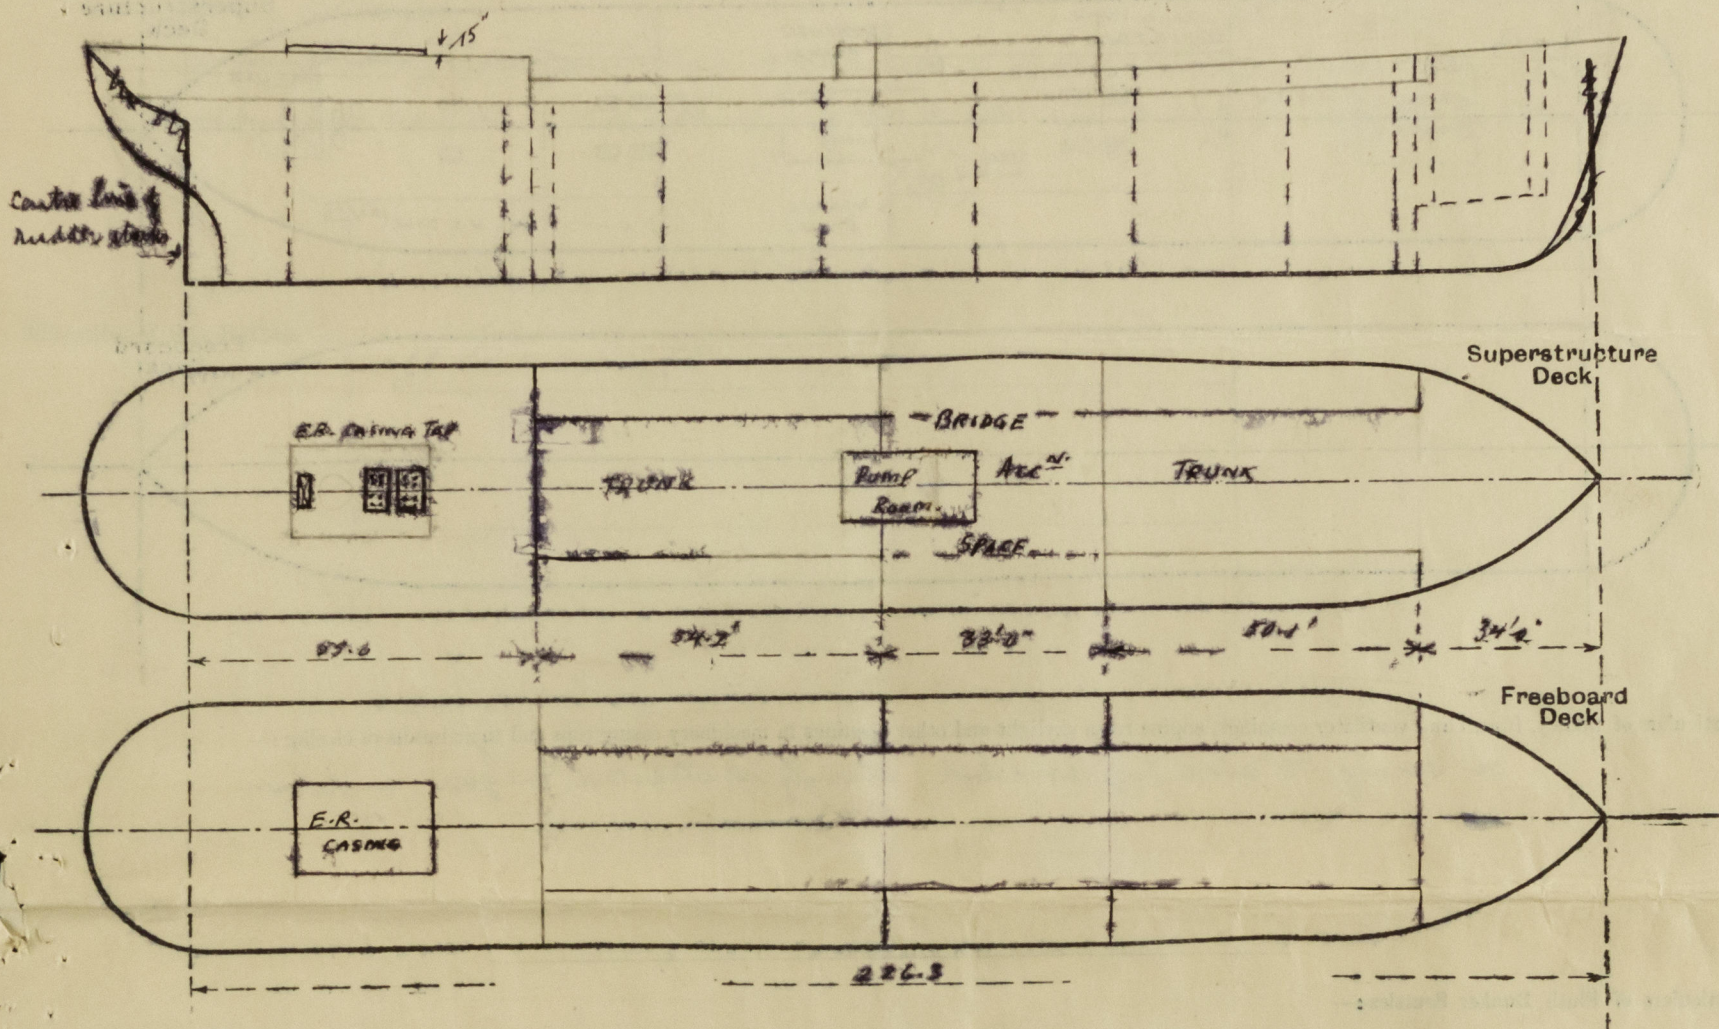 15"
Centre line of
rudder stock
Superstructure
Deck
E.R. CASING TOP
BRIDGE
TRUNK
Pump
Room.
Acc N.
TRUNK
SPACE
54.2'
33'0"
50.1'
Freeboard
Deck
E.R.
CASING
226.3